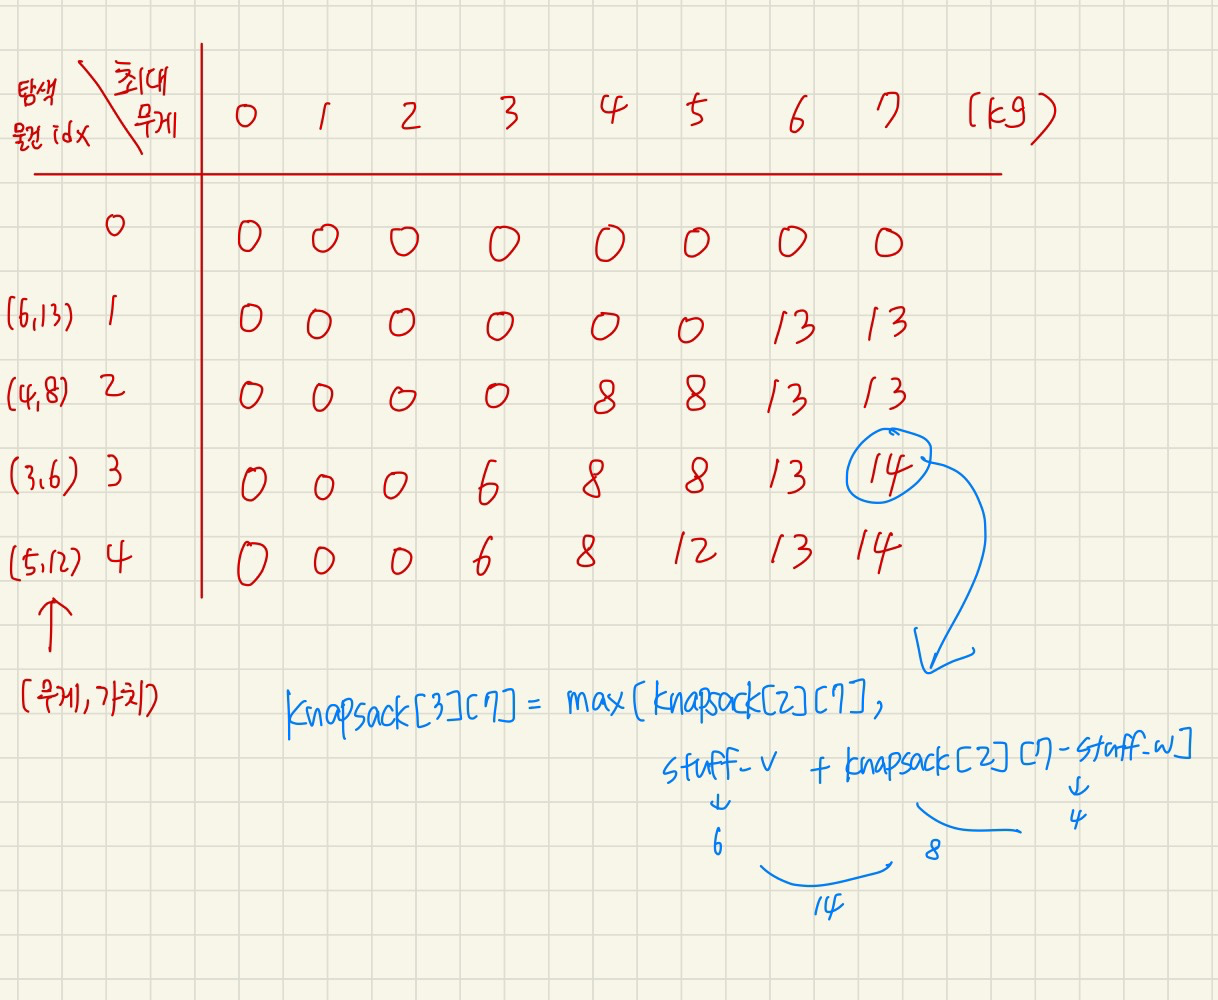 탐색 최대
물건 idx 무게 0 1 2 3 4 5 6 7 (kg)
0 0 0 0 0 0 0 0 0
(6,13) 1 0 0 0 0 0 0 13 13
(4,8) 2 0 0 0 0 8 8 13 13
(3,6) 3 0 0 0 6 8 8 13 14
(5,12) 4 0 0 0 6 8 12 13 14
(무게, 가치)
knapsack[3][7] = max(knapsack[2][7],
stuff_v + knapsack[2][7-stuff_w]
6 8 4
14